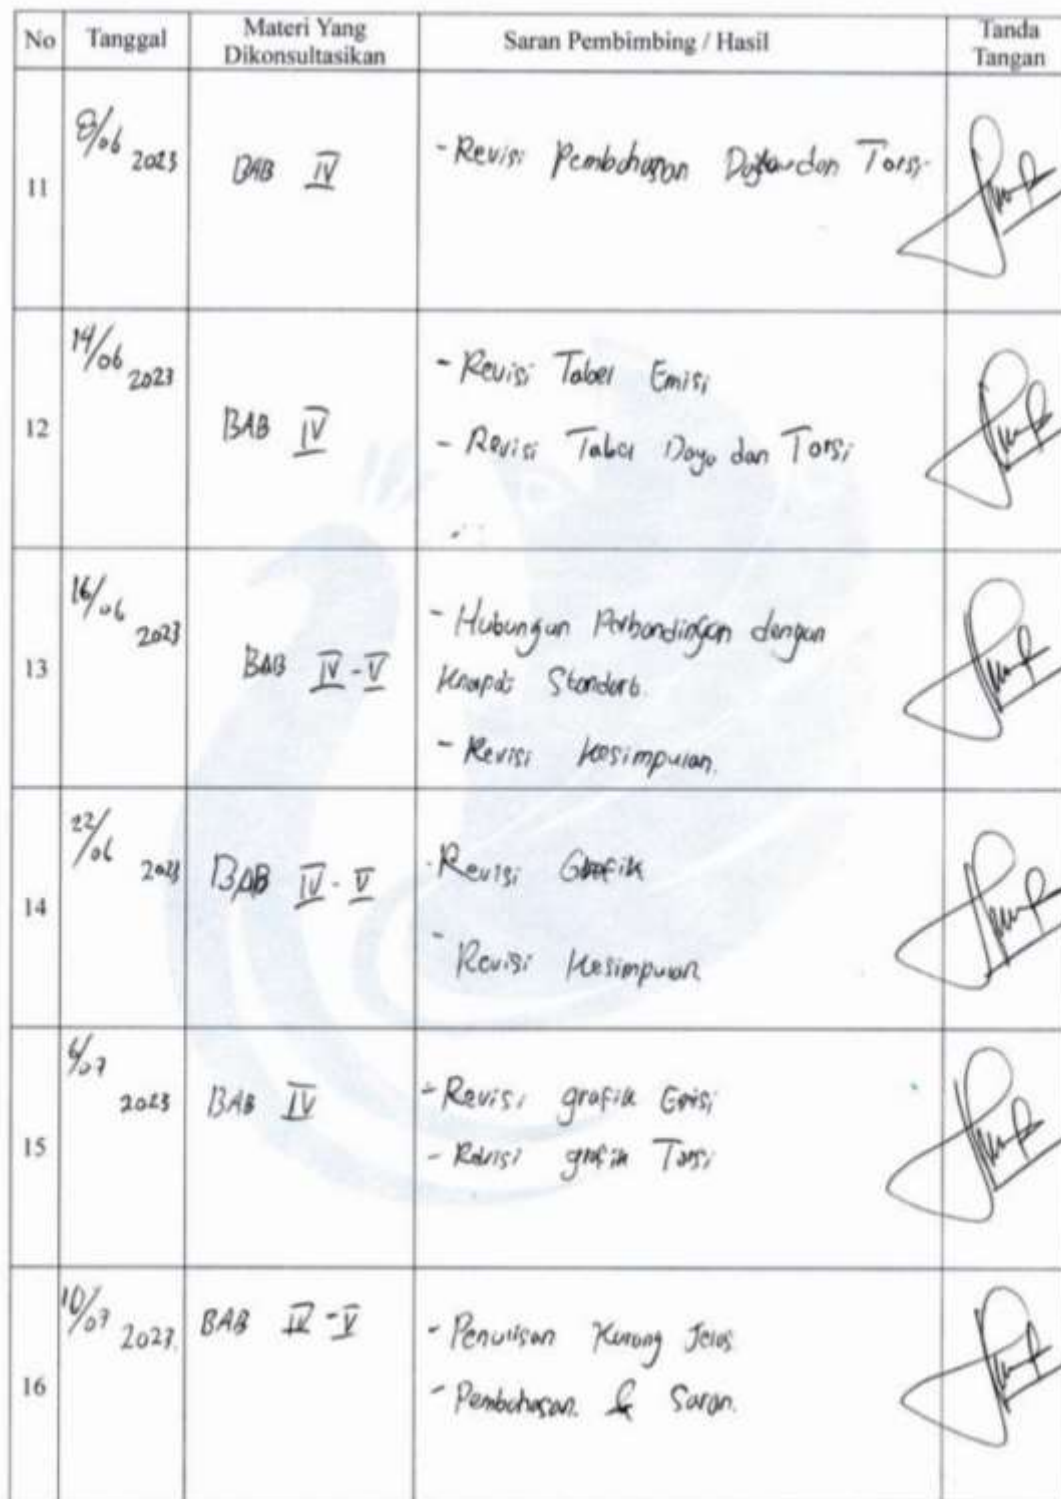 No Tanggal Materi Yang Dikonsultasikan Saran Pembimbing / Hasil Tanda Tangan
11 8/06 2023 BAB IV - Revisi Pembahasan Daya dan Torsi
12 14/06 2023 BAB IV - Revisi Tabel Emisi
- Revisi Tabel Daya dan Torsi
13 16/06 2023 BAB IV - V - Hubungan Perbandingan dengan
Knapot Standart.
- Revisi Kesimpulan.
14 22/06 2023 BAB IV - V - Revisi Grafik
- Revisi Kesimpulan
15 6/07 2023 BAB IV - Revisi grafik Emisi
- Revisi grafik Torsi
16 10/07 2023. BAB IV - V - Penulisan Kurang Jelas
- Pembahasan. & Saran.